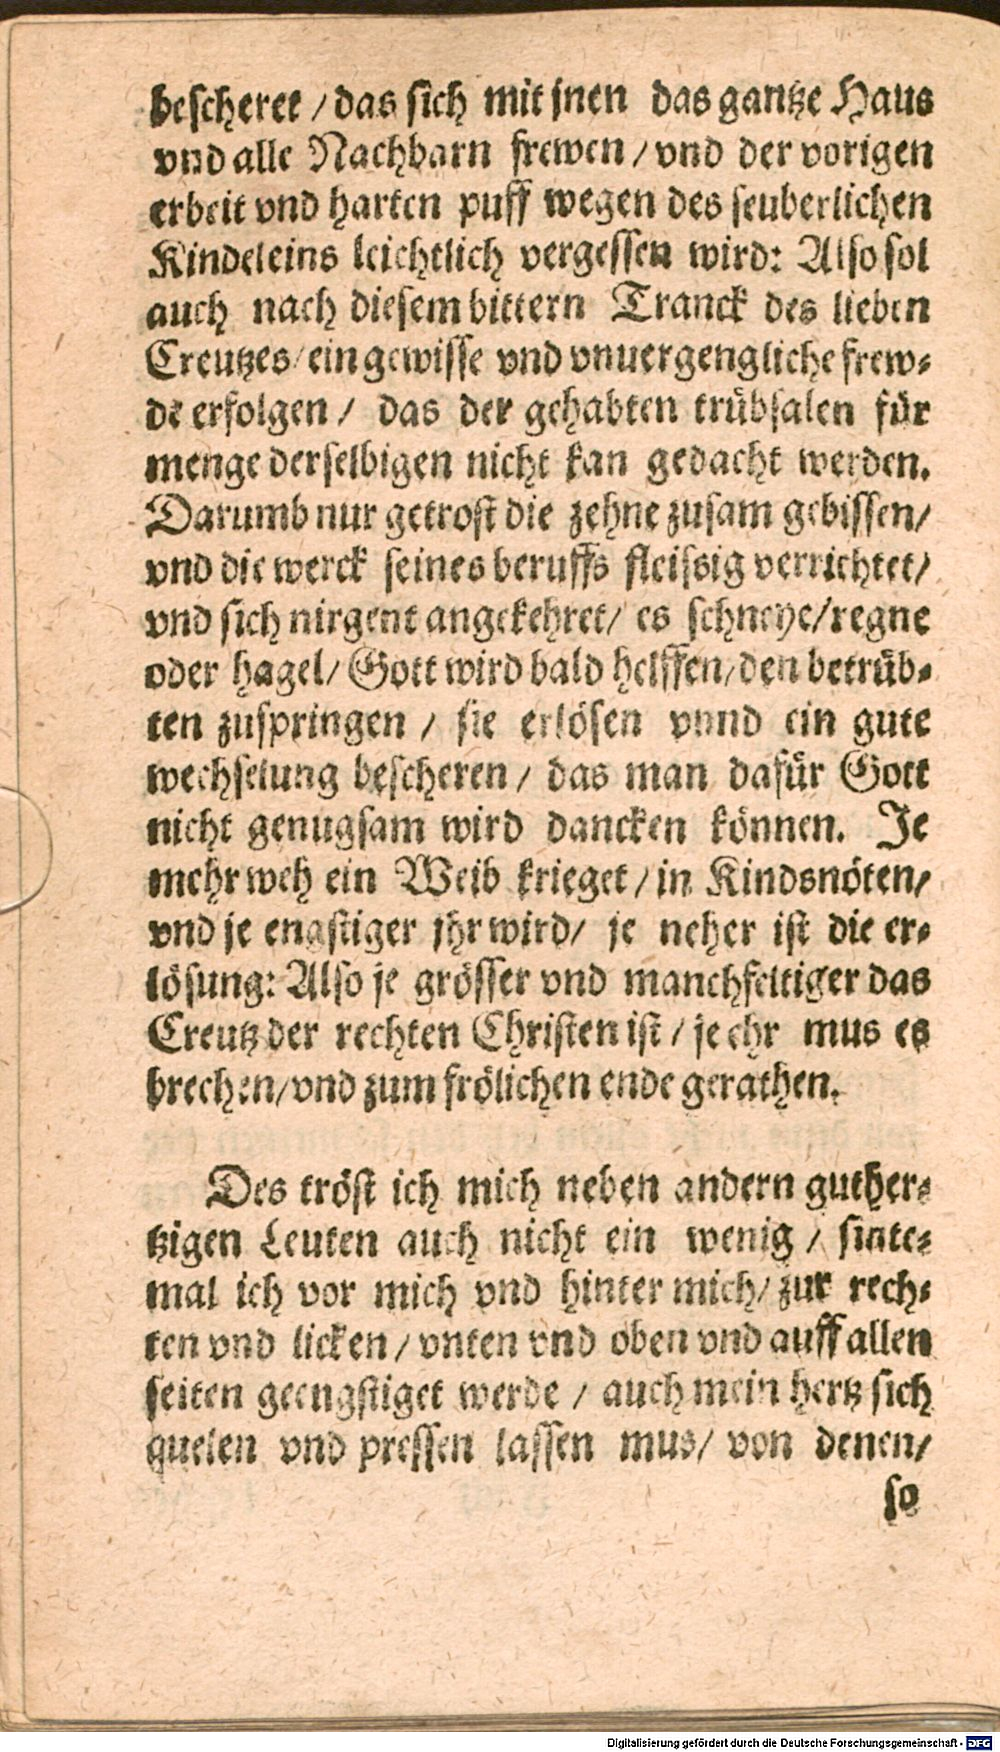 bescheret / das sich mit jnen das gantze Haus
vnd alle Nachbarn frewen / vnd der vorigen
erbeit vnd harten puff wegen des seuberlichen
Kindeleins leichtlich vergessen wird: Also sol
auch nach diesem bittern Tranck des lieben
Creutzes / ein gewisse vnd vnuergengliche frew-
de erfolgen / das der gehabten trübsalen für
menge derselbigen nicht kan gedacht werden.
Darumb nur getrost die zehne zusam gebissen /
vnd die werck seines beruffs fleissig verrichtet /
vnd sich nirgent angekehret / es schneye / regne
oder hagel / Gott wird bald helffen / den betrüb-
ten zuspringen / sie erlösen vnnd ein gute
wechselung bescheren / das man dafür Gott
nicht genugsam wird dancken können. Je
mehr weh ein Weib krieget / in Kindsnöten /
vnd je engstiger jhr wird / je neher ist die er-
lösung: Also je grösser vnd manchfeltiger das
Creutz der rechten Christen ist / je ehr mus es
brechen / vnd zum frölichen ende gerathen.
Des tröst ich mich neben andern guther-
tzigen Leuten auch nicht ein wenig / sinte-
mal ich vor mich vnd hinter mich / zur rech-
ten vnd licken / vnten vnd oben vnd auff allen
seiten geengstiget werde / auch mein hertz sich
quelen vnd pressen lassen mus / von denen /
so
Digitalisierung gefördert durch die Deutsche Forschungsgemeinschaft - DFG